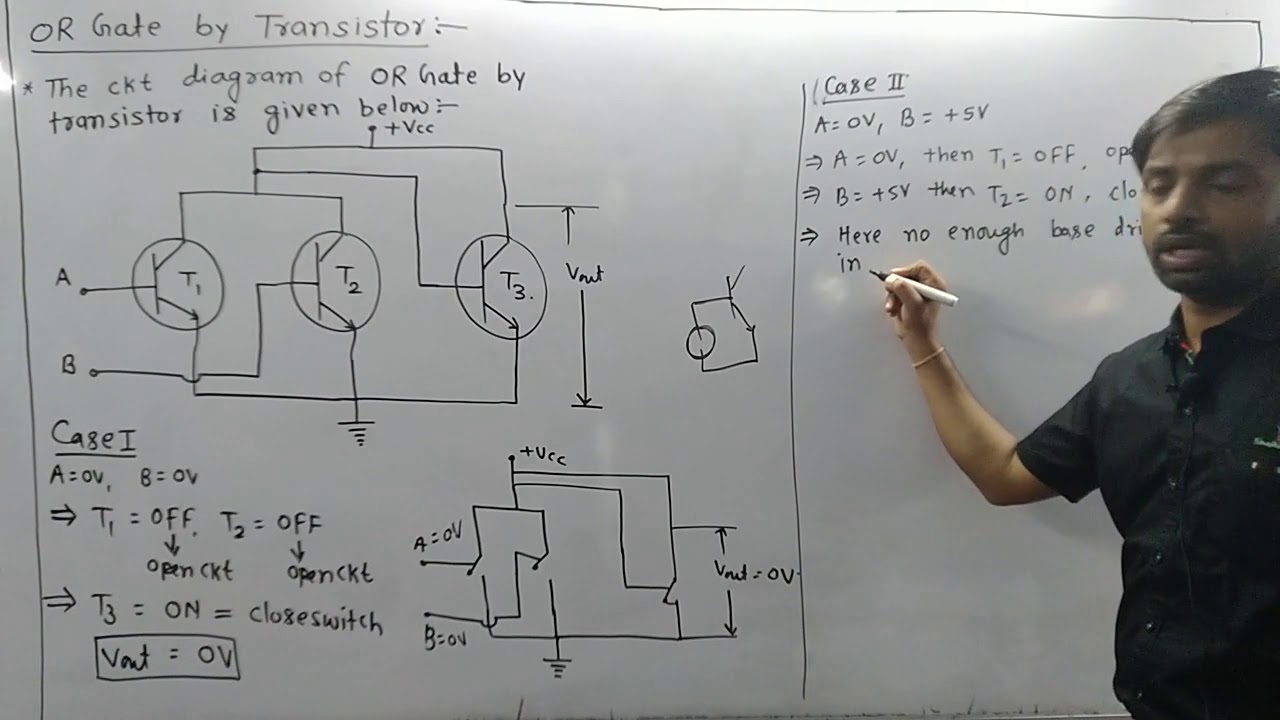 OR Gate by Transistor:-
* The ckt diagram of OR Gate by
transistor is given below:-
+Vcc
A
T1
T2
T3.
Vout
B
Case I
A=0V, B=0V
⇒ T1 = OFF. T2 = OFF
↓ ↓
open ckt open ckt
⇒ T3 = ON = closeswitch
Vout = 0V
+Vcc
A=0V
Vout=0V.
B=0V
Case II
A=0V, B=+5V
⇒ A=0V, then T1=OFF,
⇒ B=+5V then T2=ON,
⇒ Here no enough base
in